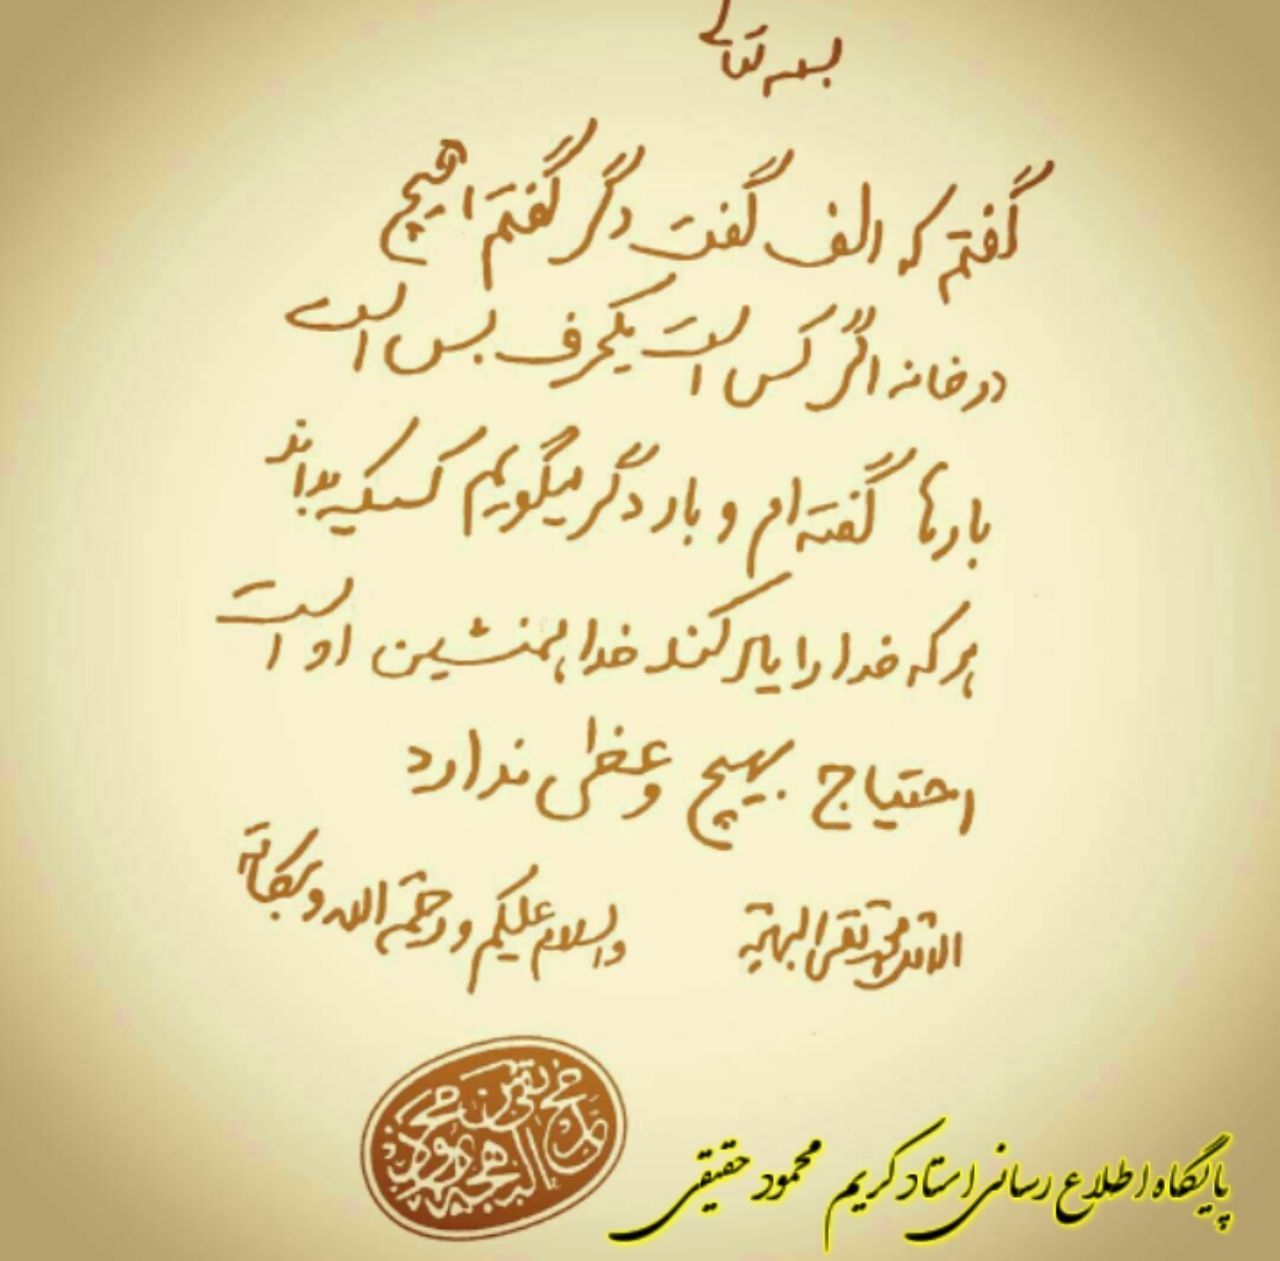 بسمه تعالی
گفتم که الف گفت دگر گفتم هیچ
در خانه اگر کس است یکحرف بس است
بارها گفته‌ام و بار دگر میگویم کسیکه بداند
هر که خدا را یاد کند خدا همنشین او است
احتیاج بهیچ وعظی ندارد
والسلام علیکم و رحمة الله و برکاته
الاقل محمد تقی البهجة
پایگاه اطلاع رسانی استاد کریم محمود حقیقی